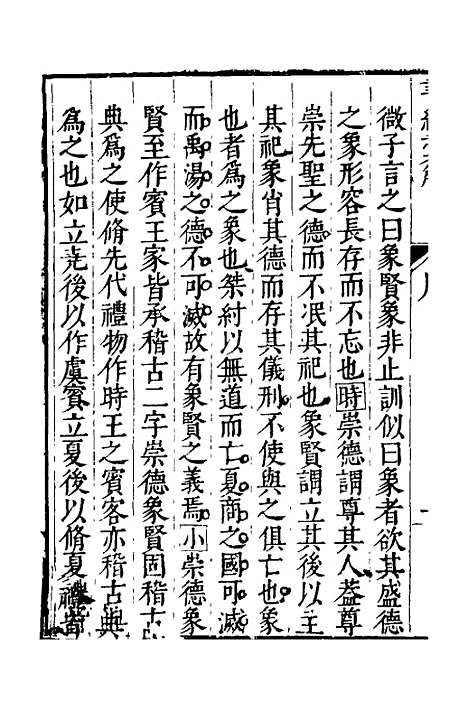 微子言之曰象賢象非止訓似曰象者欲其盛德
之象形容長存而不忘也時崇德謂尊其人葢尊
崇先聖之德而不泯其祀也象賢謂立其後以主
其祀象肖其德而存其儀刑不使與之俱亡也象
也者爲之象也桀紂以無道而亡夏商之國可滅
而禹湯之德不可滅故有象賢之義焉小崇德象
賢至作賓王家皆承稽古二字崇德象賢固稽古
典爲之使脩先代禮物作時王之賓客亦稽古典
爲之也如立堯後以作虞賓立夏後以脩夏禮皆